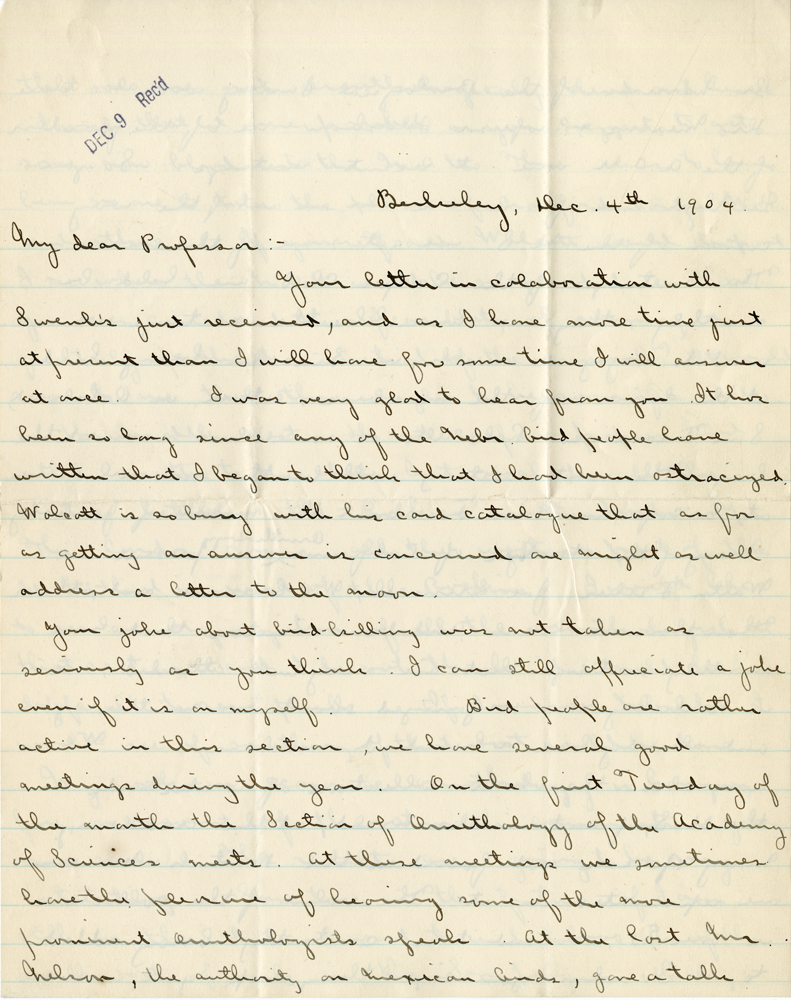 DEC 9 Rec'd
Berkeley, Dec. 4th 1904.
My dear Professor:-
Your letter in colaboration with
Swenk's just received, and as I have more time just
at present than I will have for some time I will answer
at once. I was very glad to hear from you. It has
been so long since any of the Nebr. bird people have
written that I began to think that I had been ostracized.
Wolcott is so busy with his card catalogue that as far
as getting an answer is concerned one might as well
address a letter to the moon.
Your joke about bird-killing was not taken as
seriously as you think. I can still appreciate a joke
even if it is on myself. Bird people are rather
active in this section, we have several good
meetings during the year. On the first Tuesday of
the month the Section of Ornithology of the Academy
of Sciences meets. At these meetings we sometimes
have the pleasure of hearing some of the more
prominent ornithologists speak. At the last Mr.
Nelson, the authority on Mexican birds, gave a talk